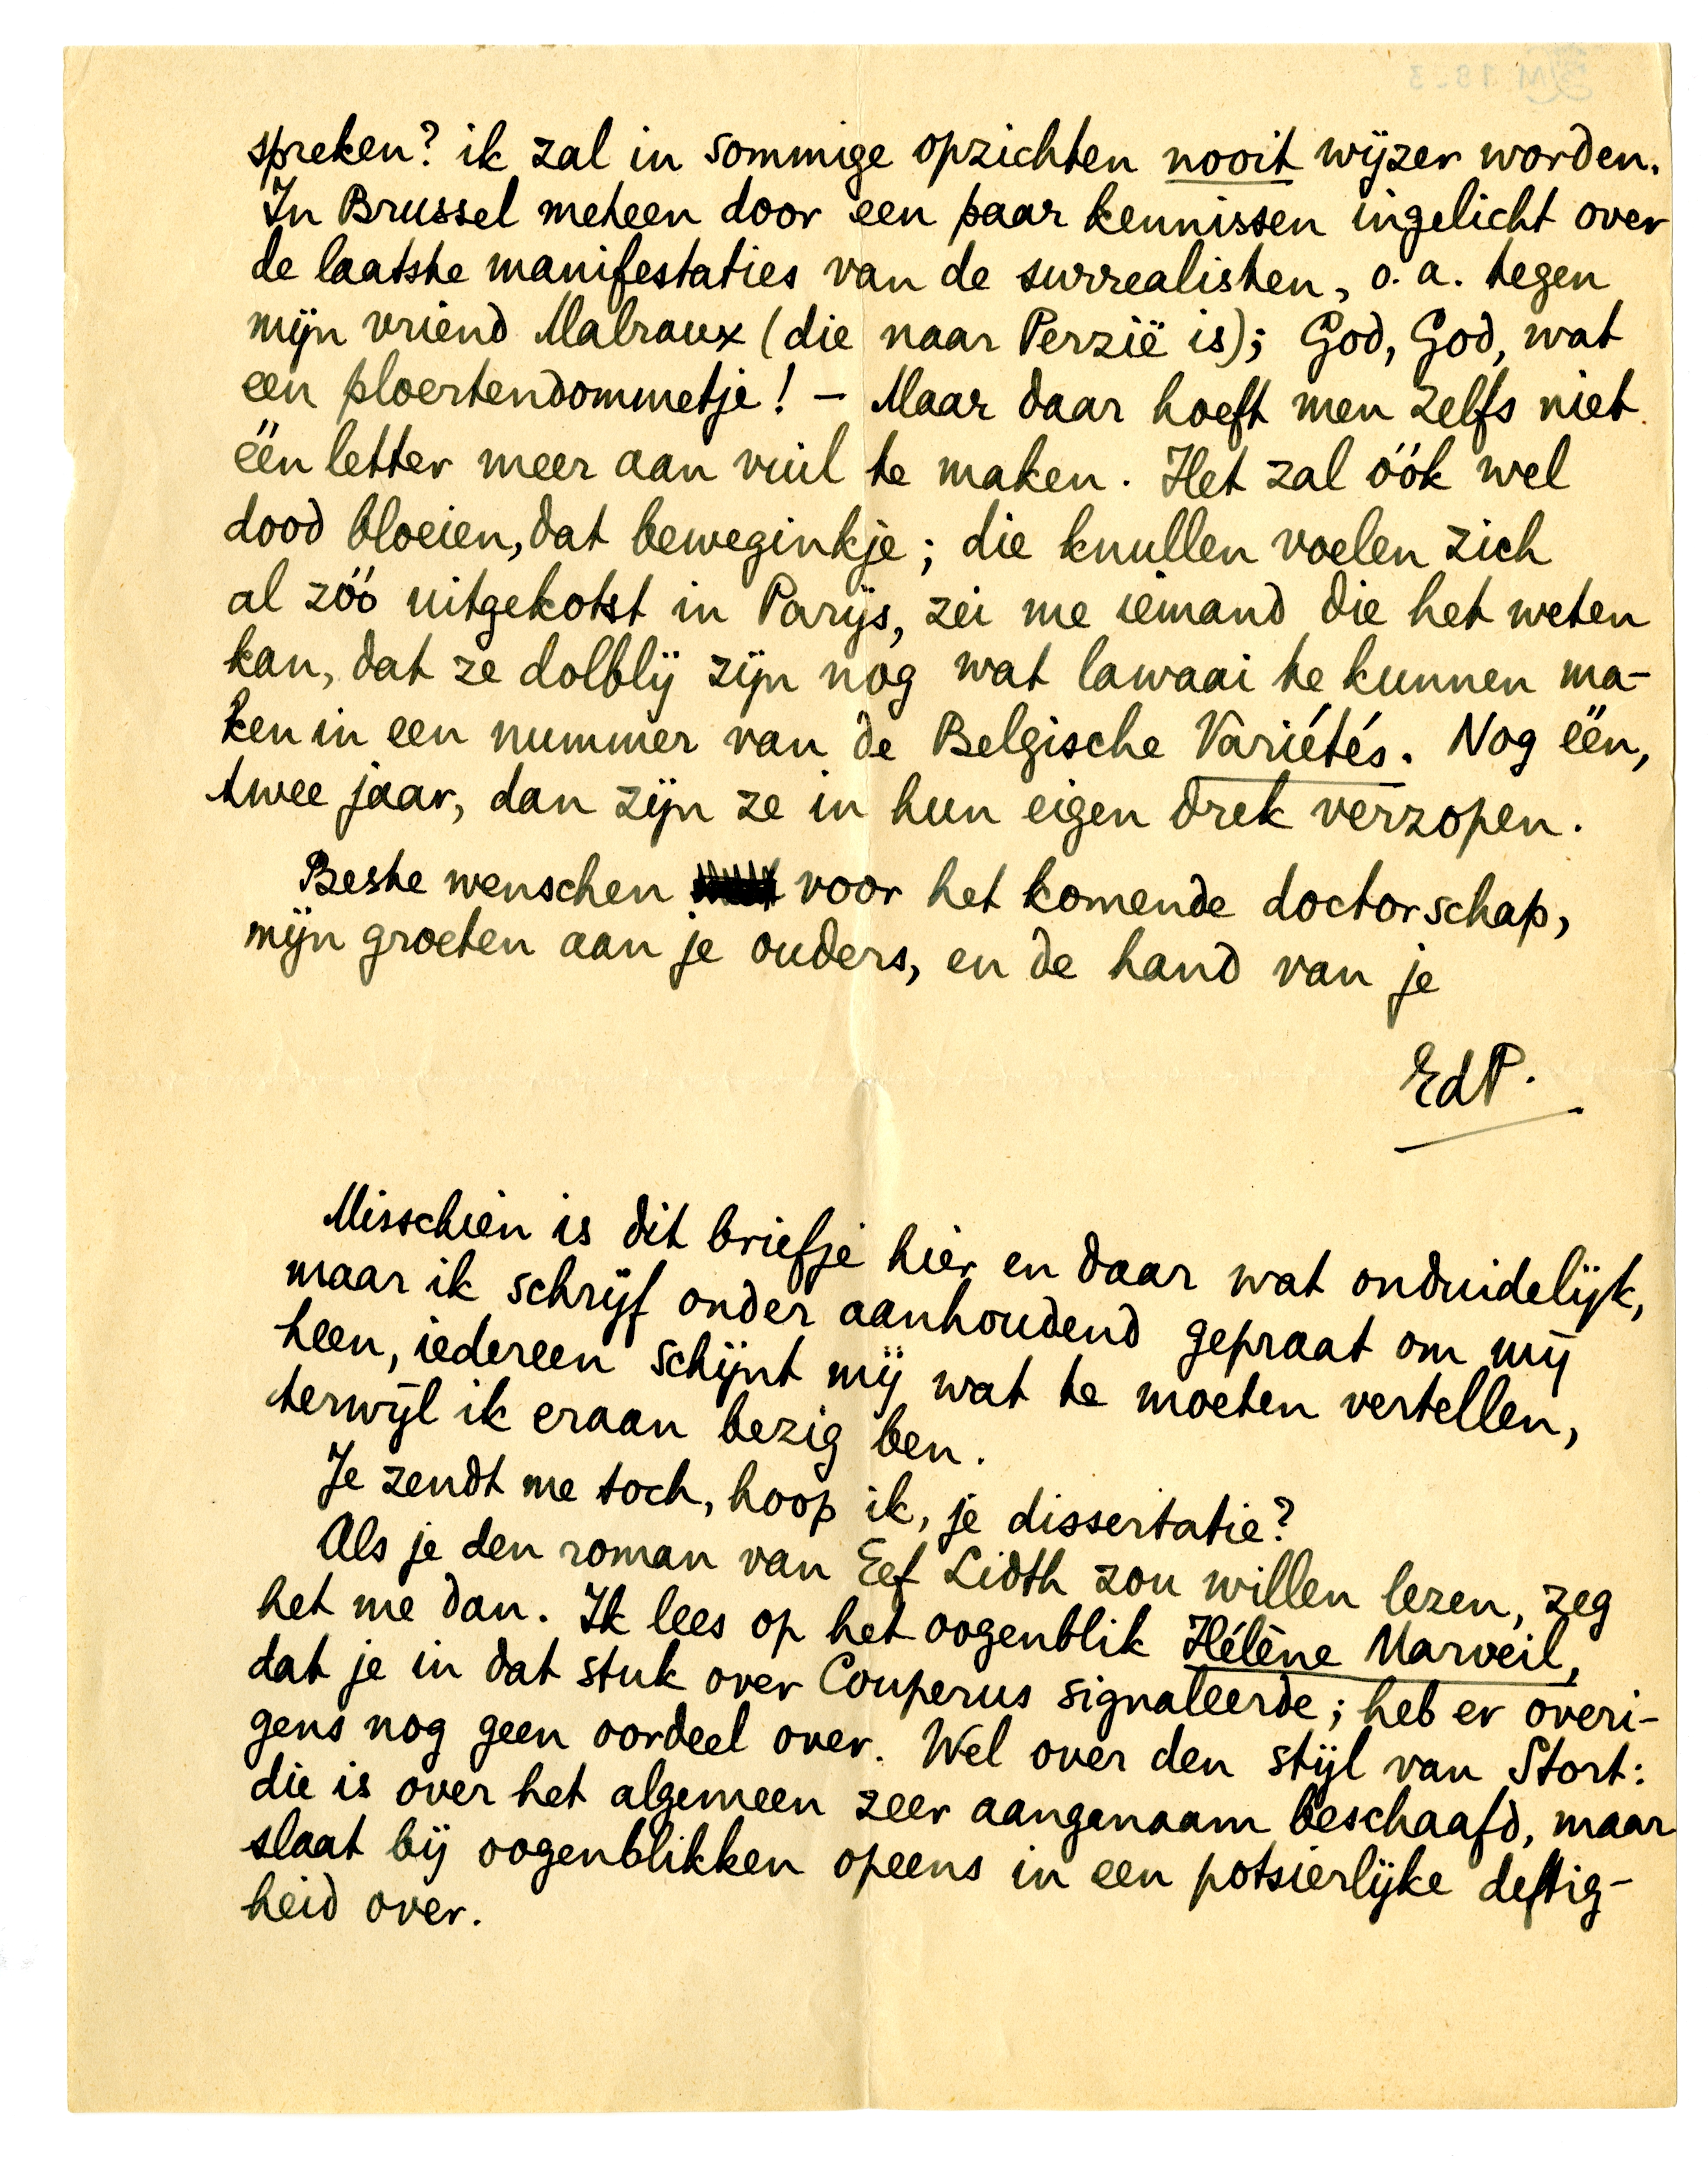 spreken? ik zal in sommige opzichten nooit wijzer worden.
In Brussel meteen door een paar kennissen ingelicht over
de laatste manifestaties van de surrealisten, o.a. tegen
mijn vriend Malraux (die naar Perzië is); God, God, wat
een ploertendommetje! – Maar daar hoeft men zelfs niet
één letter meer aan vuil te maken. Het zal óók wel
dood bloeien, dat beweginkje; die knullen voelen zich
al zóó uitgekotst in Parijs, zei me iemand die het weten
kan, dat ze dolblij zijn nog wat lawaai te kunnen ma-
ken in een nummer van de Belgische Variétés. Nog één,
twee jaar, dan zijn ze in hun eigen drek verzopen.
Beste wenschen voor het komende doctorschap,
mijn groeten aan je ouders, en de hand van je
EdP.
Misschien is dit briefje hier en daar wat onduidelijk,
maar ik schrijf onder aanhoudend gepraat om mij
heen, iedereen schijnt mij wat te moeten vertellen,
terwijl ik eraan bezig ben.
Je zendt me toch, hoop ik, je dissertatie?
Als je den roman van Eef Lidth zou willen lezen, zeg
het me dan. Ik lees op het oogenblik Hélène Marveil,
dat je in dat stuk over Couperus signaleerde; heb er overi-
gens nog geen oordeel over. Wel over den stijl van Stort:
die is over het algemeen zeer aangenaam beschaafd, maar
slaat bij oogenblikken opeens in een potsierlijke deftig-
heid over.